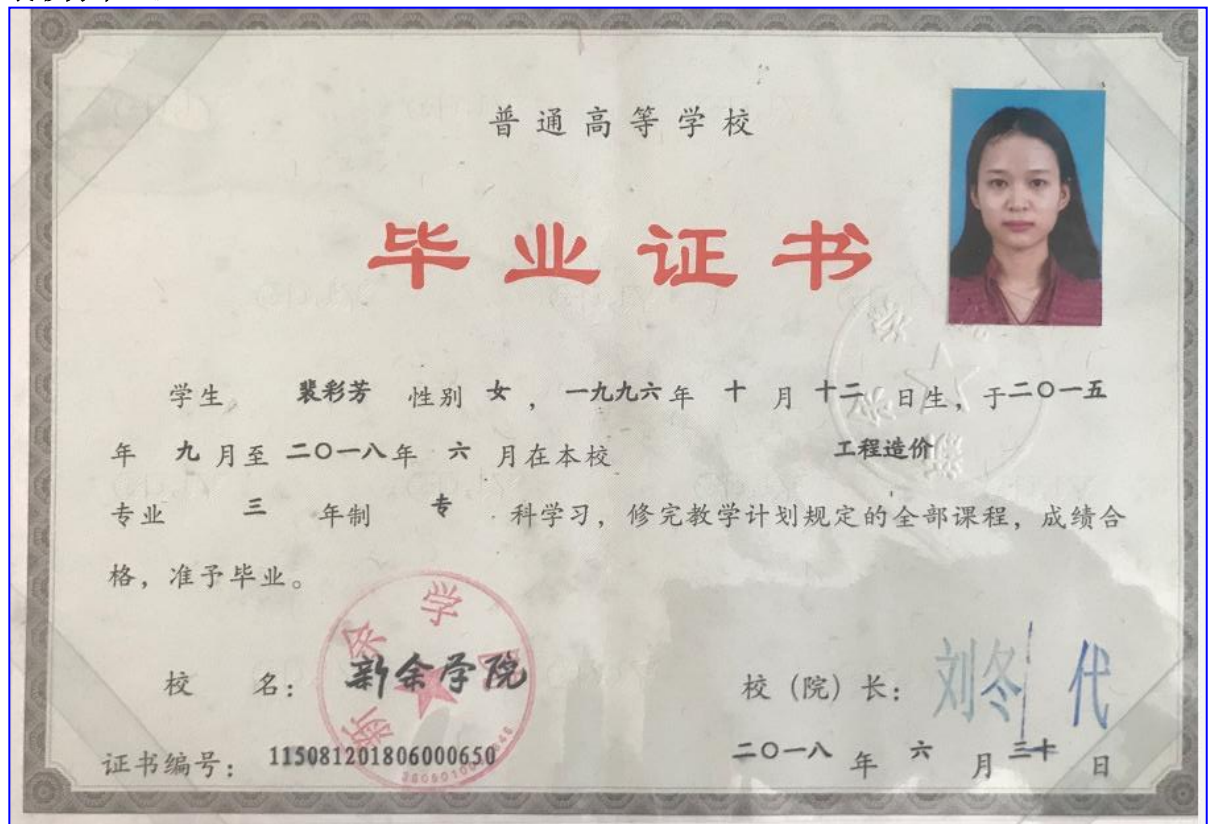 普通高等学校
毕业证书
学生 裴彩芳 性别 女，一九九六年 十 月 十二 日生，于二〇一五
年 九 月至 二〇一八年 六 月在本校 工程造价
专业 三 年制 专 科学习，修完教学计划规定的全部课程，成绩合
格，准予毕业。
校 名：新余学院
校（院）长：刘冬代
证书编号：115081201806000650
二〇一八 年 六 月 三十 日